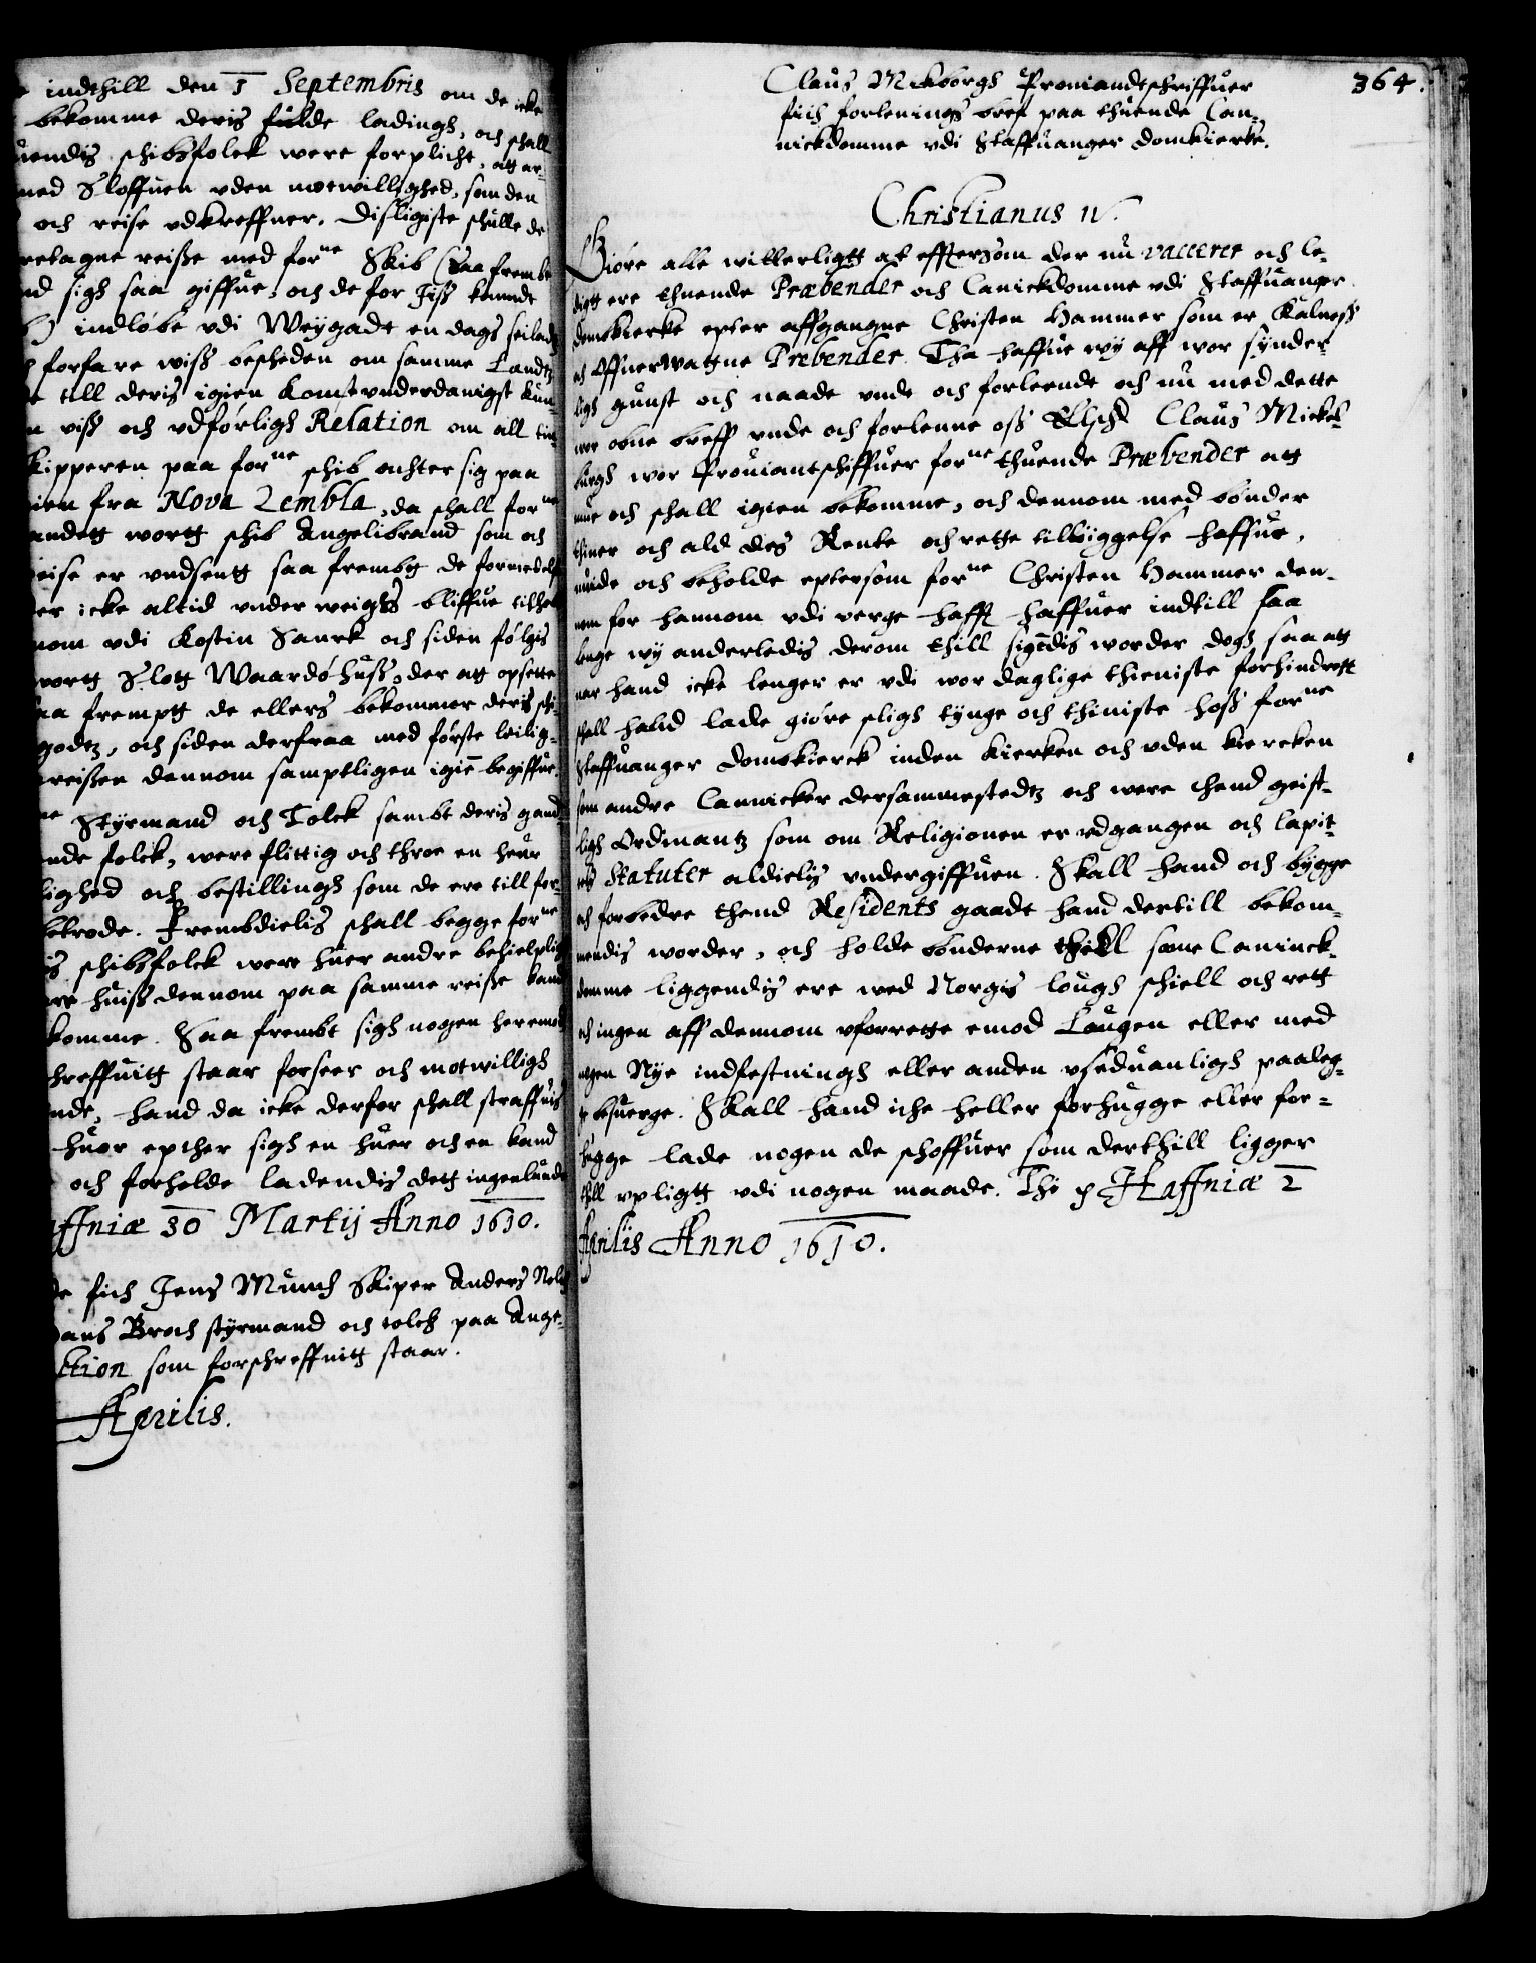 indthill den 1 Septembris om de icke
bekomme deris fulde ladingh, och schall
schibsfolck were forplicht, att ar-
med Sloffuen vden motwillighed, som den
och reise vdkreffuer. Disligiste schulle de
reise med forne Skib (Saa frembt
sigh saa giffue, och de for Jiss kunde
indløbe vdi Weygadt en dags seilads
forfare wiss bescheden om samme Landtz
till deris igien komst vnderdanigst kun-
viss och vdførligh Relation om all tin-
Skipperen paa forne schib achter sig paa
fra Nova Zembla, da schall forne
andett wortt schib Angelibrand som och
reise er vdsentt saa frembt de formedelst
icke altid vnder weighs bliffue tilhobe
vdi Kostin Sarck och siden følgis
wortt Slott Waardøhuss, der att opsette
saa fremptt de ellers bekommer deris schi-
godtz, och siden derfraa med første leilig-
reissen dennom samptligen igien begiffue.
Styrmand och Tolck sambt deris gand-
folck, were flittig och throe en huer
och bestillingh som de ere till for-
betrode. Frembdielis schall begge forne
schibsfolck were huer andre behielplig
huiss dennom paa samme reisse kand
komme. Saa frembt sigh nogen heremod
staar forseer och motwilligh
hand da icke derfor schall straffuis
huor epther sigh en huer och en kand
och forholde ladendis dett ingenlunde
Haffniæ 30 Martij Anno 1610.
fich Jens Munch Skiper Anders Nels
Hans Broch styrmand och tolch paa Ange-
som forschreffuitt staar.
Aprilis.
364.
Claus Mickborgh Prouiandtschriffuer
fich forlenings breff paa thuende Can-
nickdomme vdi Staffuanger domkierke.
Christianus IV.
Giøre alle witterligtt at efftersom der nu vacerer och le-
digtt ere thuende Præbender och Canickdomme vdi Staffuanger
domkierke epter affgangne Christen Hammer som er Kalness
och Præbender. Tha haffue wy aff wor synder-
ligh gunst och naade vnde och forleende och nu med dette
wor obne breff vnde och forlenne oss Elsch Claus Mickel-
burgh wor Prouiantschiffuer forne thuende Præbender att
nue och schall igien bekomme, och dennom med bønder
thiner och ald des Rente och rette tilliggelse haffue,
niude och beholde eptersom forne Christen Hammer den-
nom for hannom vdi verge hafft haffuer indtill saa
lenge wy anderledis derom thill sigendis worder dogh saa att
nar hand icke lenger er vdi wor daglige thieniste forhindrett
schall hand lade giøre sligh tynge och thiniste hoss forne
Staffuanger domkierck inden kiercken och vden kiercken
som andre Cannicker dersammestedtz och were thend geist-
ligh Ordinantz som om Religionen er vdgangen och Capit-
tels Statuter aldielis vndergiffuen. Skall hand och bygge
och forbedre thend Residents gaardt hand dertill bekom-
mendis worder, och holde bønderne thill same Canninck-
domme liggendis ere wed Norgis lough schiell och rett
och ingen aff dennom vforrette emod Laugen eller med
nogen Nye indfestningh eller anden vseduanligh paaleg-
besuerge. Skall hand iche heller forhugge eller for-
hugge lade nogen de schoffuer som derthill ligger
thill vpligtt vdi nogen maade. Thi etc. Haffniæ 2
Aprilis Anno 1610.